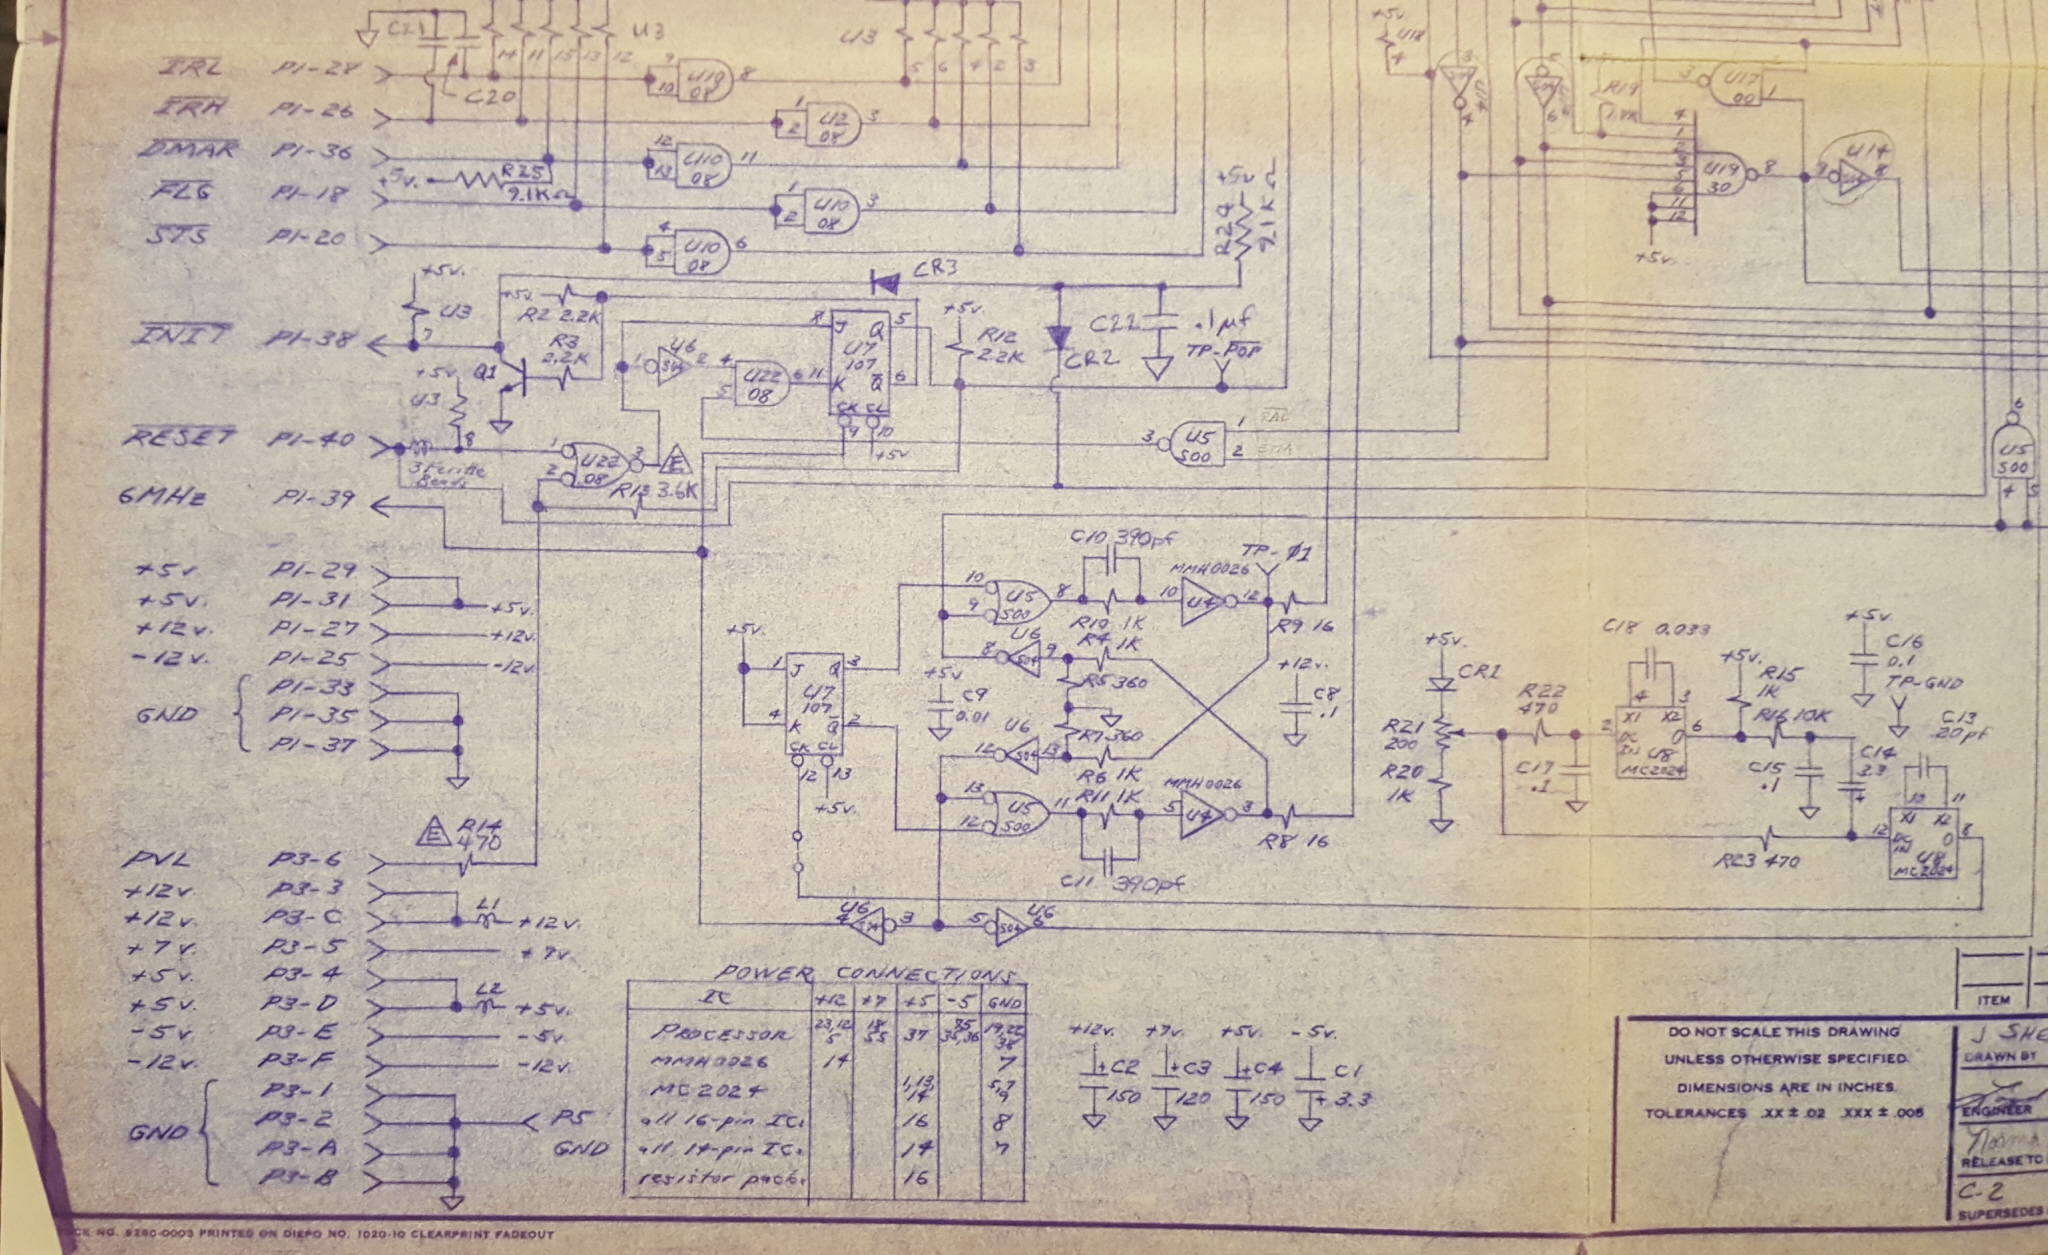 C21
U3
U3
+5v
U18
4
14 11 15 13 12
5 6 4 2 3
IRL P1-28
9
10
U10
08
8
C20
IRH P1-26
1
2
U2
08
3
DMAR P1-36
12
13
U10
08
11
+5v. R25
9.1KΩ
FLG P1-18
1
2
U10
08
3
STS P1-20
4
5
U10
08
6
+5v
R24
9.1KΩ
3
U17
00
1
R19
1.8K
U19
30
8
U14
9
8
+5v
CR3
+5v.
U3
7
+5v
R2 2.2K
R3
2.2K
INIT P1-38
Q1
1
U6
S04
2
4
5
U22
08
6
11
8
J Q
5
U7
107
K Q
6
CK CL
9
10
+5v
+5v.
R12
2.2K
C22 .1µf
CR2
TP-POP
+5v
U3
8
RESET P1-40
3 Ferrite
Beads
1
2
U22
08
3
E
R13 3.6K
3
U5
S00
1
2
6MHz P1-39
6
U5
S00
4 5
+5v. P1-29
+5v. P1-31
+5v.
+12v. P1-27
+12v.
-12v. P1-25
-12v.
GND
P1-33
P1-35
P1-37
C10 390pf
10
9
U5
S00
8
R10 1K
10
MMH0026
U4
12
TP-Φ1
R9 16
8
U6
S04
9
R4 1K
R5 360
+5v
C9
0.01
+12v.
C8
.1
+5v.
1
J Q
3
U7
107
4
K Q
2
CK CL
12
13
+5v.
12
U6
S04
13
R7 360
R6 1K
13
12
U5
S00
11
R11 1K
5
MMH0026
U4
3
R8 16
C11 390pf
+5v
CR1
R21
200
R20
1K
R22
470
C17
.1
C18 0.033
4 3
X1 X2
2
DC
IN
O
6
U8
MC2024
+5v.
R15
1K
R16 10K
C15
.1
+5v.
C16
0.1
TP-GND
C13
20pf
C14
3.3
10 11
X1 X2
12
DC
IN
O
8
U8
MC2024
R23 470
E R14
470
PVL P3-6
+12v. P3-3
+12v. P3-C
L1
+12v.
+7v. P3-5
+7v
+5v. P3-4
+5v P3-D
L2
+5v.
-5v P3-E
-5v
-12v. P3-F
-12v.
GND
P3-1
P3-2
P3-A
P3-B
P5
GND
4
U6
3
5
U6
S04
6
POWER CONNECTIONS
IC +12 +7 +5 -5 GND
PROCESSOR 37
MMH0026 14 7
MC2024
all 16-pin ICs 16 8
all 14-pin ICs 14 7
resistor packs 16
+12v. +7v. +5v. -5v.
C2
150
C3
120
C4
150
C1
3.3
DO NOT SCALE THIS DRAWING
UNLESS OTHERWISE SPECIFIED
DIMENSIONS ARE IN INCHES.
TOLERANCES .XX ± .02 .XXX ± .005
ITEM
J SHE
DRAWN BY
ENGINEER
RELEASE TO
C-2
SUPERSEDES
CK NO. 9280-0003 PRINTED ON DIEPO NO. 1020-10 CLEARPRINT FADEOUT